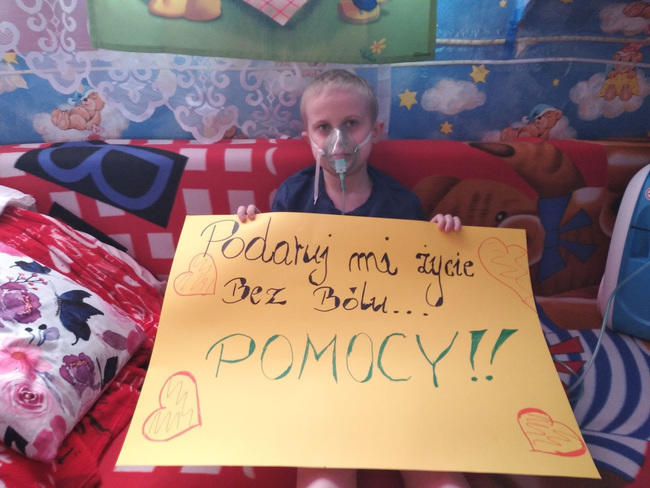 Podaruj mi życie
Bez Bólu...
POMOCY!!
B